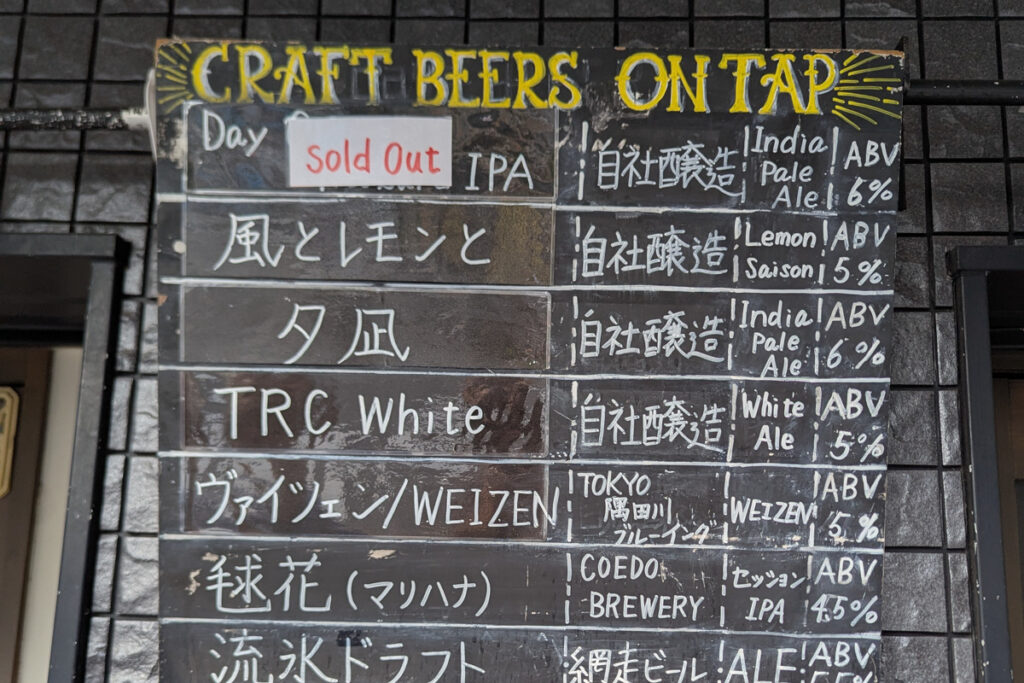 CRAFT BEERS ON TAP
Day
Sold Out
IPA
自社醸造
India
Pale
Ale
ABV
6%
風とレモンと
自社醸造
Lemon
Saison
ABV
5%
夕凪
自社醸造
India
Pale
Ale
ABV
6%
TRC White
自社醸造
White
Ale
ABV
5%
ヴァイツェン/WEIZEN
TOKYO
隅田川
ブルーイング
WEIZEN
ABV
5%
毬花(マリハナ)
COEDO
BREWERY
セッション
IPA
ABV
4.5%
流氷ドラフト
網走ビール
ALE
ABV